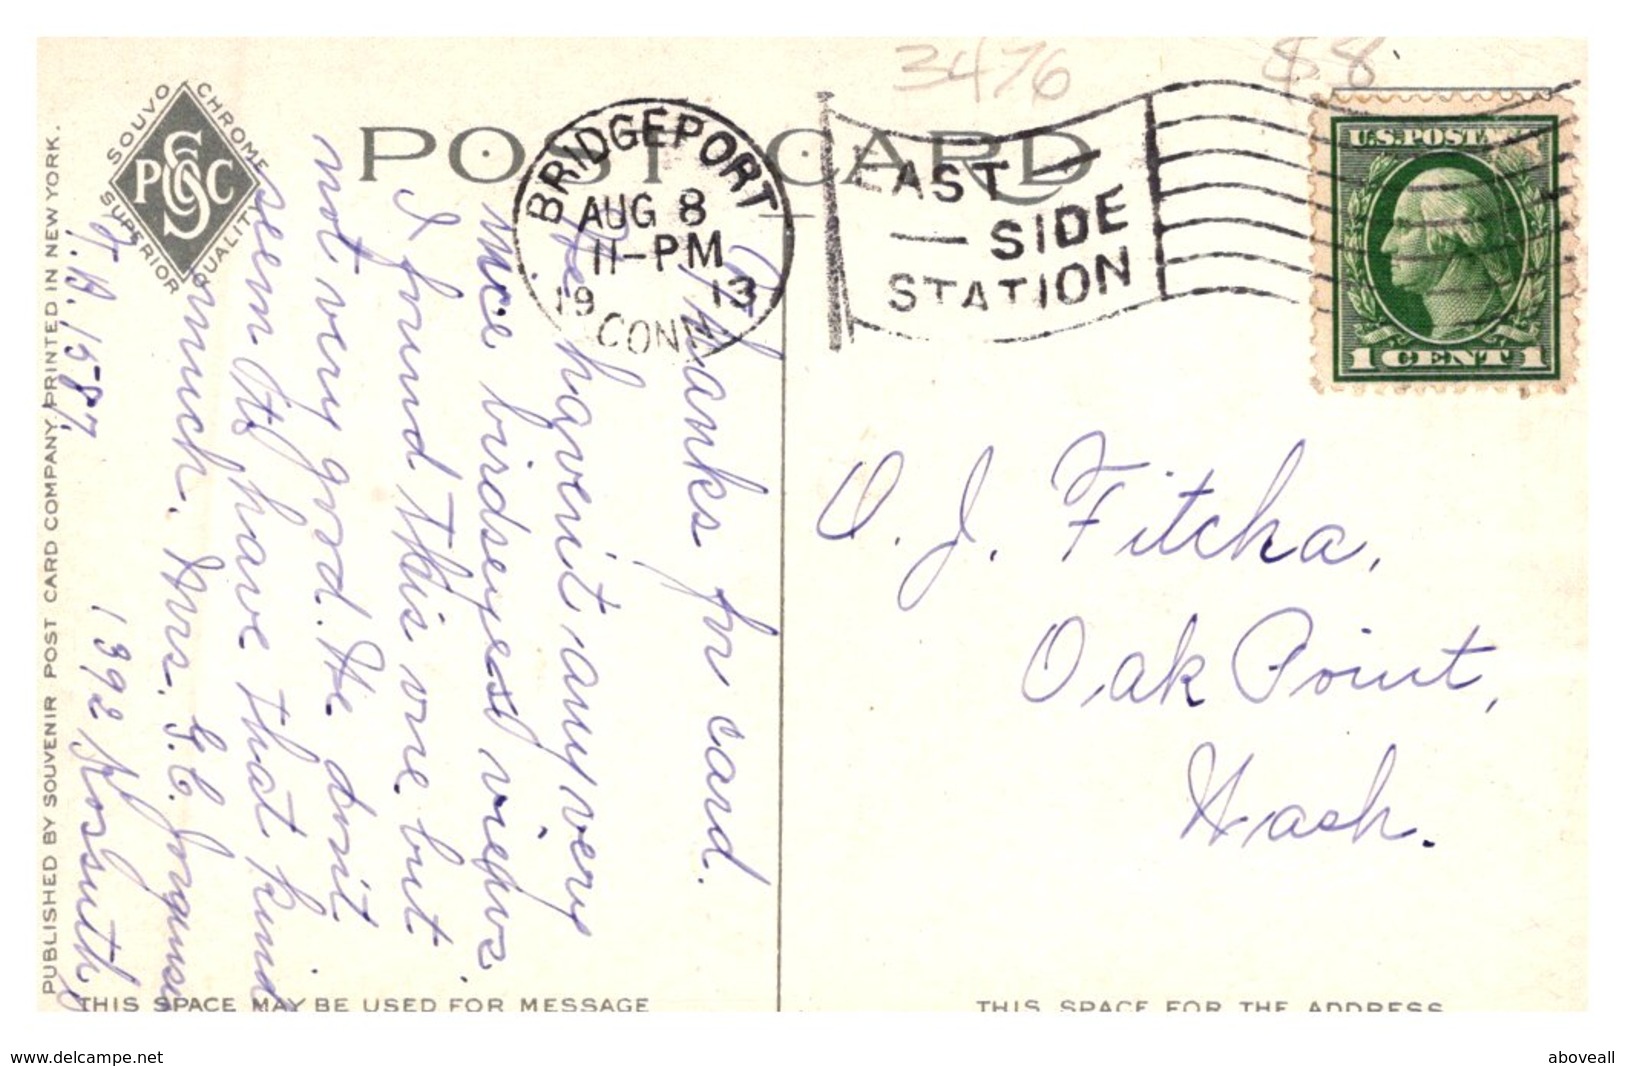 3476
$8
POST CARD
BRIDGEPORT
AUG 8
11-PM
19 13
CONN
EAST
SIDE
STATION
U.S. POSTAGE
1 CENT 1
SOUVO CHROME
PSCC
SUPERIOR QUALITY
PUBLISHED BY SOUVENIR POST CARD COMPANY, PRINTED IN NEW YORK.
Thanks for card.
We havenit any very
nice birdseyes views
I found this one but
not very good. We don't
seem to have that kind
much. Mrs. G. C. Jorgensen
1392 Kossuth
F.A. 1587
O. J. Fitcha,
Oak Point,
Wash.
THIS SPACE MAY BE USED FOR MESSAGE
THIS SPACE FOR THE ADDRESS
www.delcampe.net
aboveall